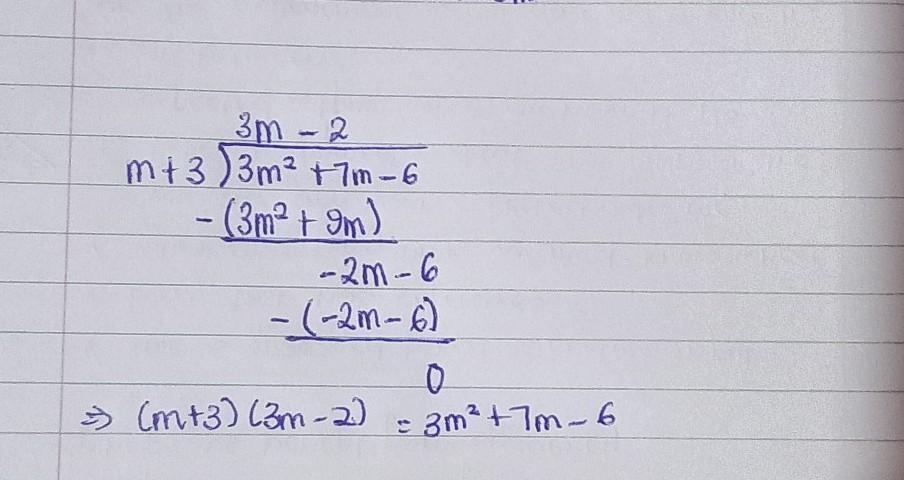 3m - 2
m+3)3m² +7m-6
-(3m² + 9m)
-2m-6
-(-2m-6)
0
⇒ (m+3)(3m-2) = 3m²+7m-6